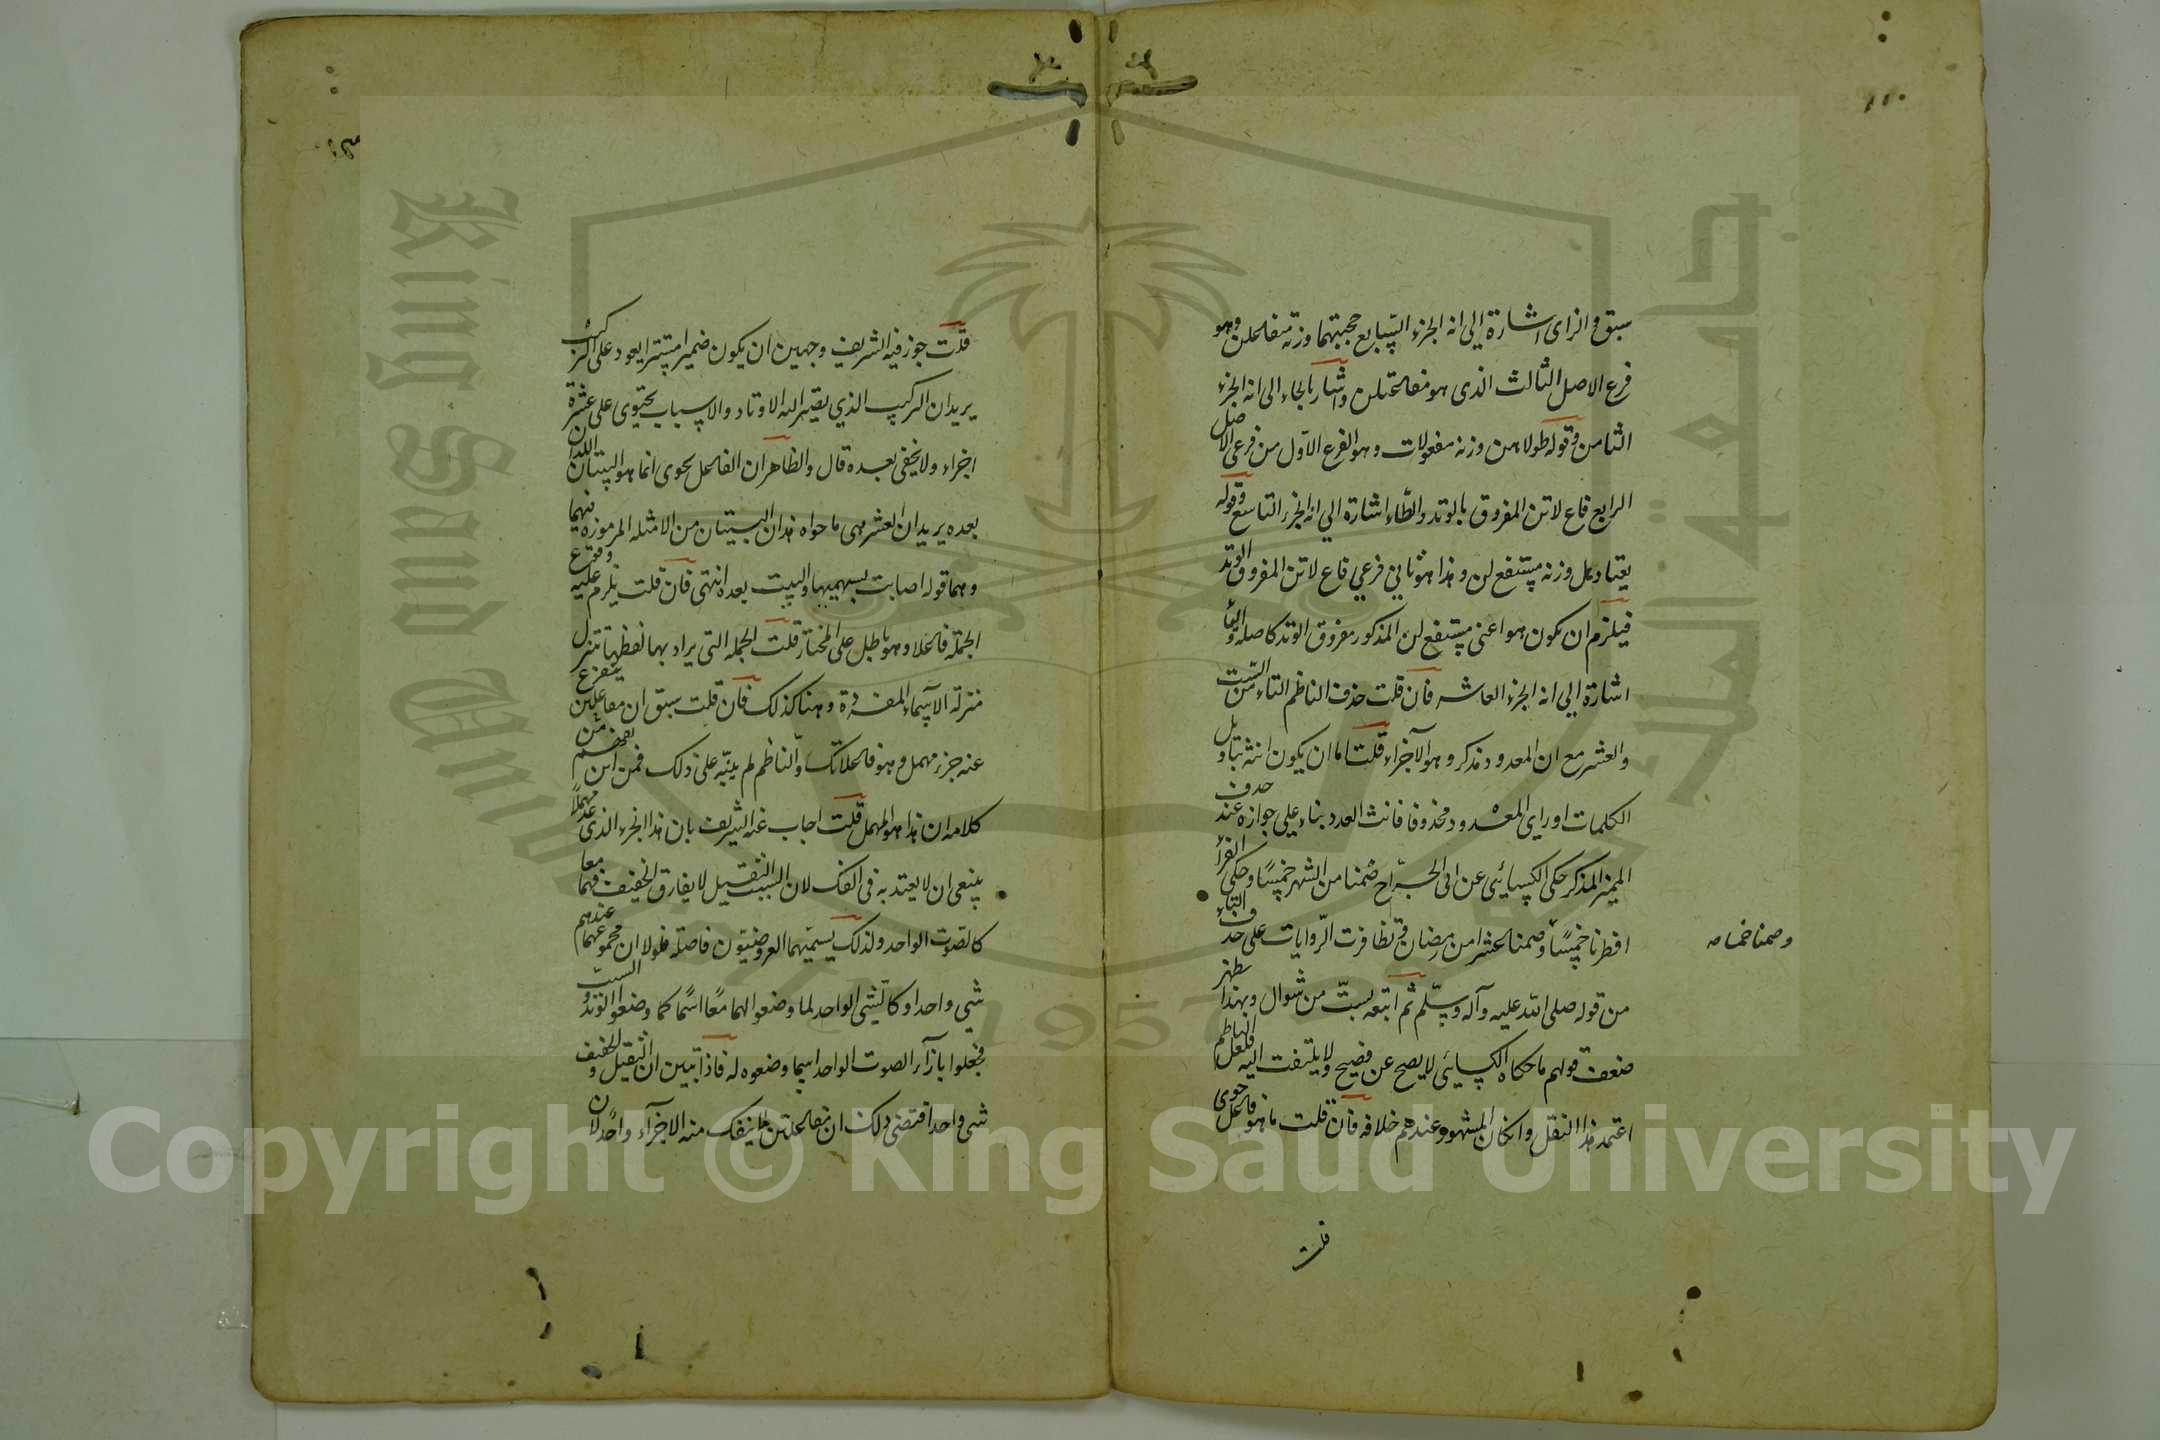 سبق والزاى اشارة إلى انه الجزء السابع حجبتهما وزنه مفاعلن وهو
فرع الاصل الثالث الذى هو مفاعلتن واشار بالحاء الى انه الجزء
الثامن وقوله طولاهن وزنه مفعولات وهو الفرع الاول من فرعى الاصل
الرابع فاع لاتن المفروق بالوتد والطاء اشارة الي انه الجزء التاسع وقوله
يعتادكل وزنه مستفع لن وهذا هو ثاني فرعي فاع لاتن المفروق الوتد
فيلزم ان يكون هو اعنى مستفع لن المذكور مفروق الوتد كاصله والياء
اشارة إلي انه الجزء العاشر فان قلت حذف الناظم التاء من الست
والعشر مع ان المعدود مذكر وهو الاجزاء قلت اما ان يكون انثه بتاويل
الكلمات او راى المعدود محذوفا فانث العدد بناء على جوازه عند حذف
المميز المذكر حكى الكسائى عن ابى الجراح صمنا من الشهر خمسًا وحكى الفراء
افطرنا خمسًا وصمنا عشرا من رمضان وتظافرت الروايات على حذف التاء
وصمنا خمسا صه
من قوله صلى الله عليه وآله وسلم ثم اتبعه بست من شوال وبهذا يظهر
ضعف قولهم ما حكاه الكسائى لا يصح عن فصيح ولا يلتفت اليه فلعل الناظم
اعتمد هذا النقل وانكان المشهور عندهم خلافه فان قلت ما هو فاعل حوى
قلت
قلت جوز فيه الشريف وجهين ان يكون ضميرا مستترا يعود على التركيب
يريد ان التركيب الذي يصير اليه الاوتاد والاسباب يحتوى على عشرة
اجزاء ولا يخفى بعده قال والظاهر ان الفاعل بحوى انما هو البيتان اللذان
بعده يريد ان العشر هى ما حواه هذان البيتان من الامثله المرموزه فيهما
وهما قوله اصابت بسهميها والبيت بعده انتهى فان قلت يلزم عليه وقوع
الجملة فاعلا وهو باطل على المختار قلت الجمله التى يراد بها لفظها تتنزل
منزلة الاسماء المفردة وهنا كذلك فان قلت سبق ان مفاعلتن يتفرع
عنه جزء مهمل وهو فاعلاتك والناظم لم ينبه على ذلك فمن اين يفهم من
كلامه ان هذا هو المهمل قلت اجاب عنه الشريف بان هذا الجزء الذى عد مهملًا
ينبغى ان لا يعتد به فى الفك لان السبب الثقيل لا يفارق الخفيف فهما معا
كالصوت الواحد ولذلك يسميهما العروضيون فاصلة فلولا ان مجموعهما عندهم
شى واحد او كالشى الواحد لما وضعوا لهما معًا اسمًا كما وضعوا للوتد والسبب
فجعلوا بازآء الصوت الواحد اسما وضعوه له فاذا تبين ان الثقيل والخفيف
شى واحد اقتضى ذلك ان مفاعلتن لا ينفك منه الاجزآء واحد لان